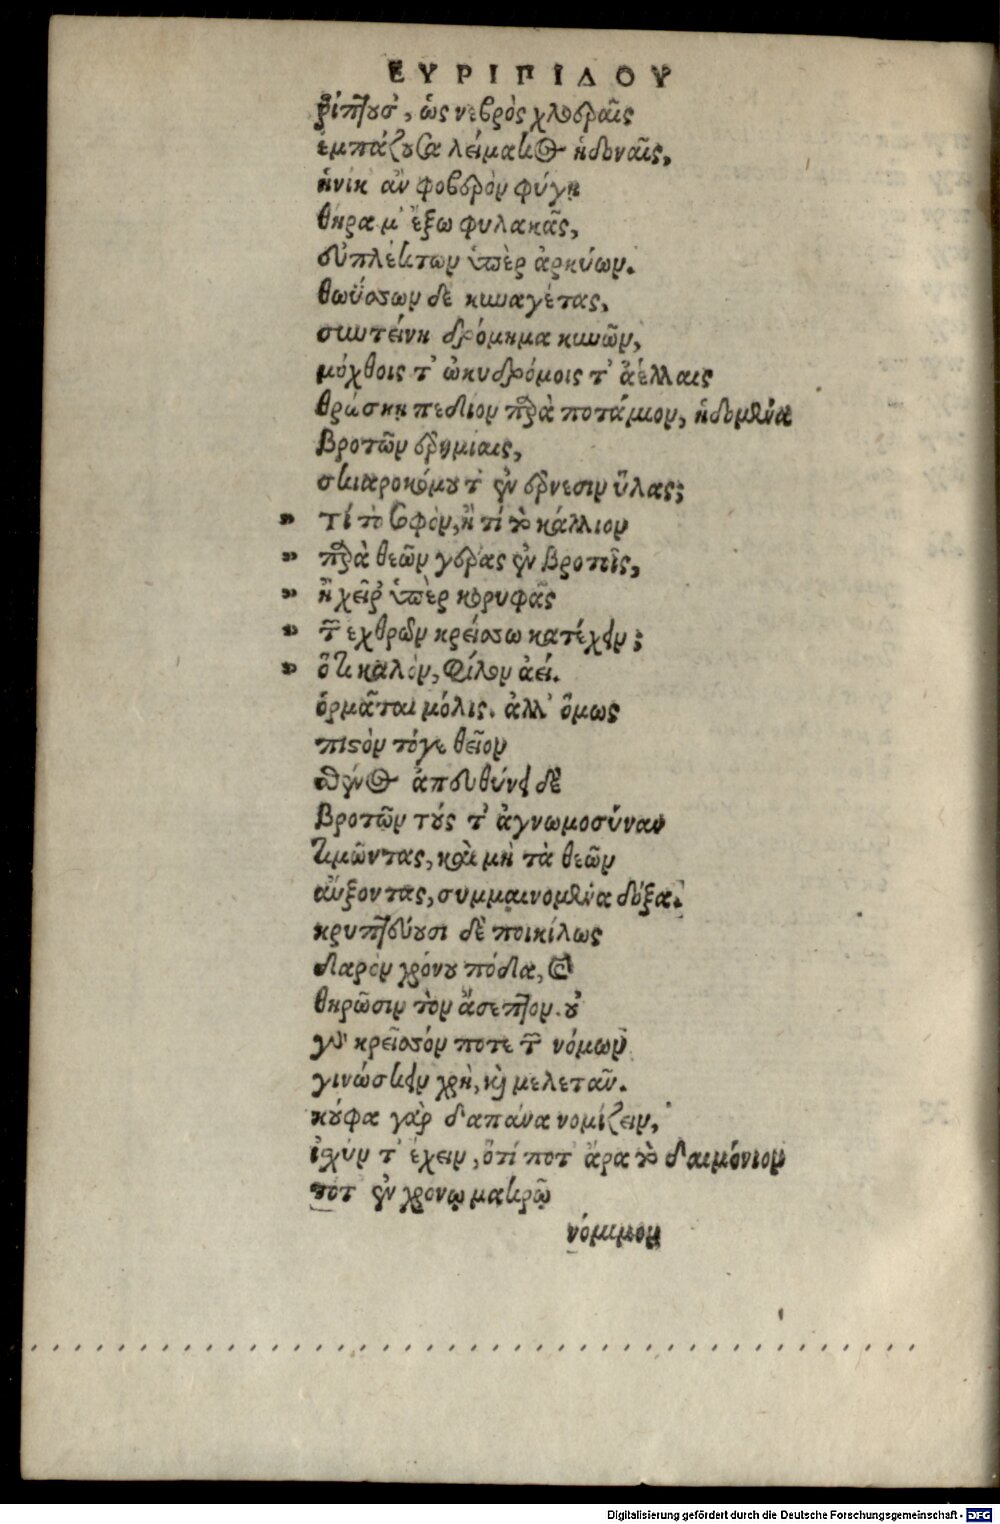 ΕΥΡΙΠΙΔΟΥ
ῥίπτουσ', ὡς νεβρὸς χλοεραῖς
ἐμπάζουσα λείμακος ἡδοναῖς,
ἡνίκ' ἀν φοβερὸν φύγῃ
θήραμ' ἔξω φυλακᾶς,
εὐπλέκτων ὑπὲρ ἀρκύων.
θωΰσσων δὲ κυναγέτας,
συντείνη δρόμημα κυνῶν,
μόχθοις τ' ὠκυδρόμοις τ' ἀέλλαις
θρώσκῃ πεδίον παρὰ ποτάμιον, ἡδομένα
βροτῶν ἐρημίαις,
σκιαροκόμου τ' ἐν ἔρνεσιν ὕλας;
" τί τὸ σοφὸν, ἢ τί τὸ κάλλιον
" παρὰ θεῶν γέρας ἐν βροτοῖς,
" ἢ χεῖρ' ὑπὲρ κορυφᾶς
" τῶν ἐχθρῶν κρείσσω κατέχειν;
" ὅτι καλὸν, φίλον ἀεί.
ὁρμᾶται μόλις. ἀλλ' ὅμως
πιστὸν τόγε θεῖον
σθένος ἀπευθύνει δὲ
βροτῶν τούς τ' ἀγνωμοσύναν
τιμῶντας, καὶ μὴ τὰ θεῶν
αὔξοντας, συμμαινομένα δόξᾳ.
κρυπτεύουσι δὲ ποικίλως
δαρὸν χρόνου πόδα, καὶ
θηρῶσιν τὸν ἄσεπτον. οὐ
γὰρ κρεῖσσόν ποτε τῶν νόμων
γινώσκειν χρὴ, καὶ μελετᾶν.
κούφα γὰρ δαπάνα νομίζειν,
ἰσχὺν τ' ἔχειν, ὅτί ποτ' ἄρα τὸ δαιμόνιον
τότ' ἐν χρονῳ μακρῷ
νόμιμον
Digitalisierung gefördert durch die Deutsche Forschungsgemeinschaft - DFG